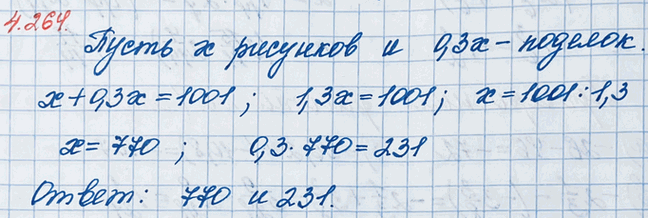 4.264.
Пусть x рисунков и 0,3x – поделок.
x+0,3x=1001; 1,3x=1001; x=1001:1,3
x=770; 0,3·770=231
Ответ: 770 и 231.